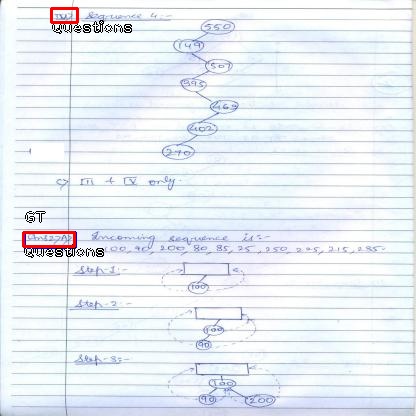 IV) Sequence 4:-
Questions
550
149
507
395
463
402
270
c) III & V only.
GT
Ans27A) Incoming sequence is:-
Questions
100, 90, 200, 80, 85, 25, 250, 225, 215, 235-
Step-1:-
100
Step-2:-
100
90
Step-3:-
100
90 200